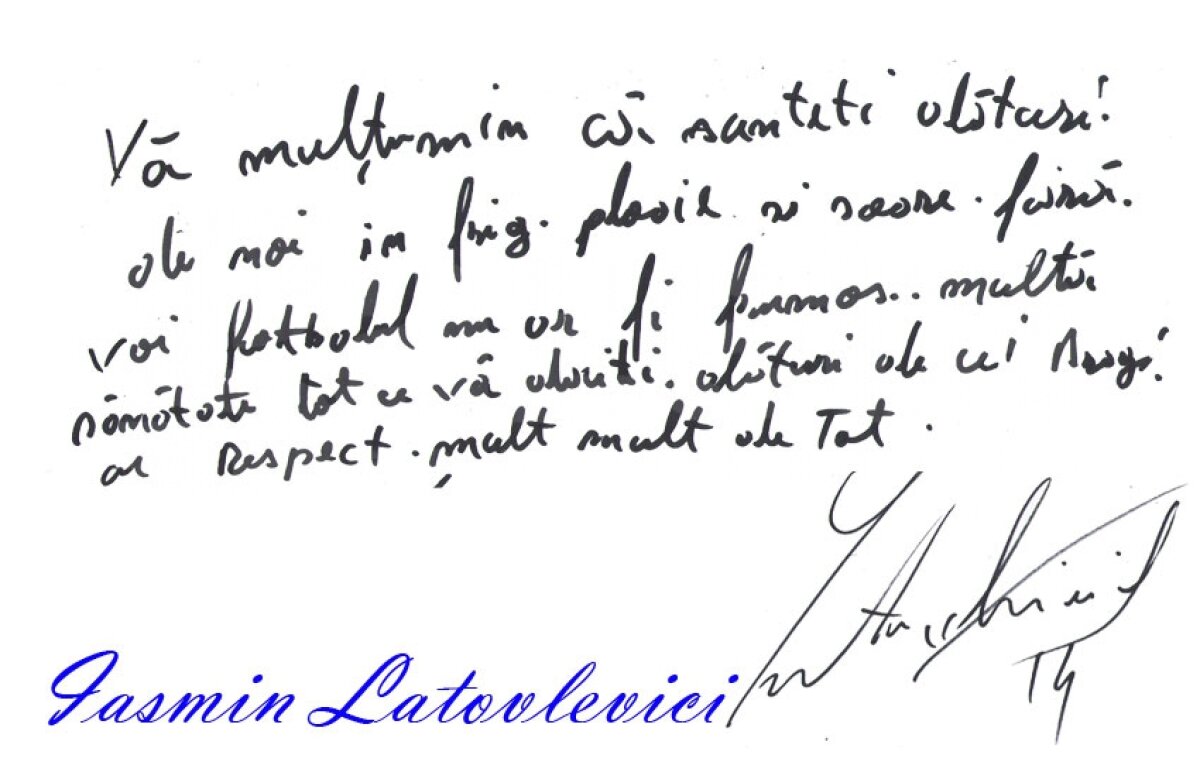 Vă mulțumim că santeti alături
de noi in frig. ploaie si soare. fără.
voi fotbolul nu ar fi frumos.. multă
sănătate tot ce vă doriti. alături de cei dragi!
cu Respect. mult mult de Tot.
14
Iasmin Latovlevici